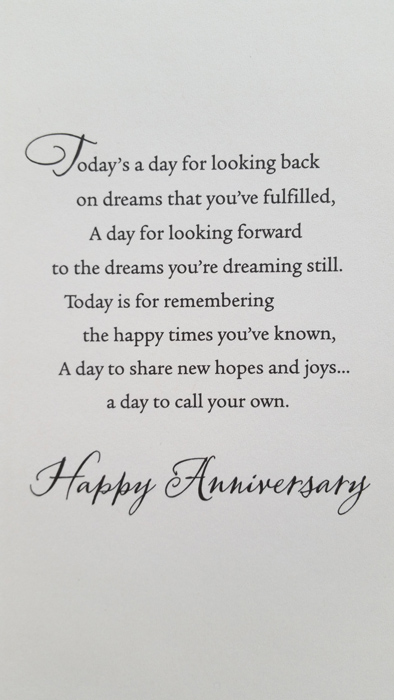 Today’s a day for looking back
on dreams that you’ve fulfilled,
A day for looking forward
to the dreams you’re dreaming still.
Today is for remembering
the happy times you’ve known,
A day to share new hopes and joys...
a day to call your own.
Happy Anniversary